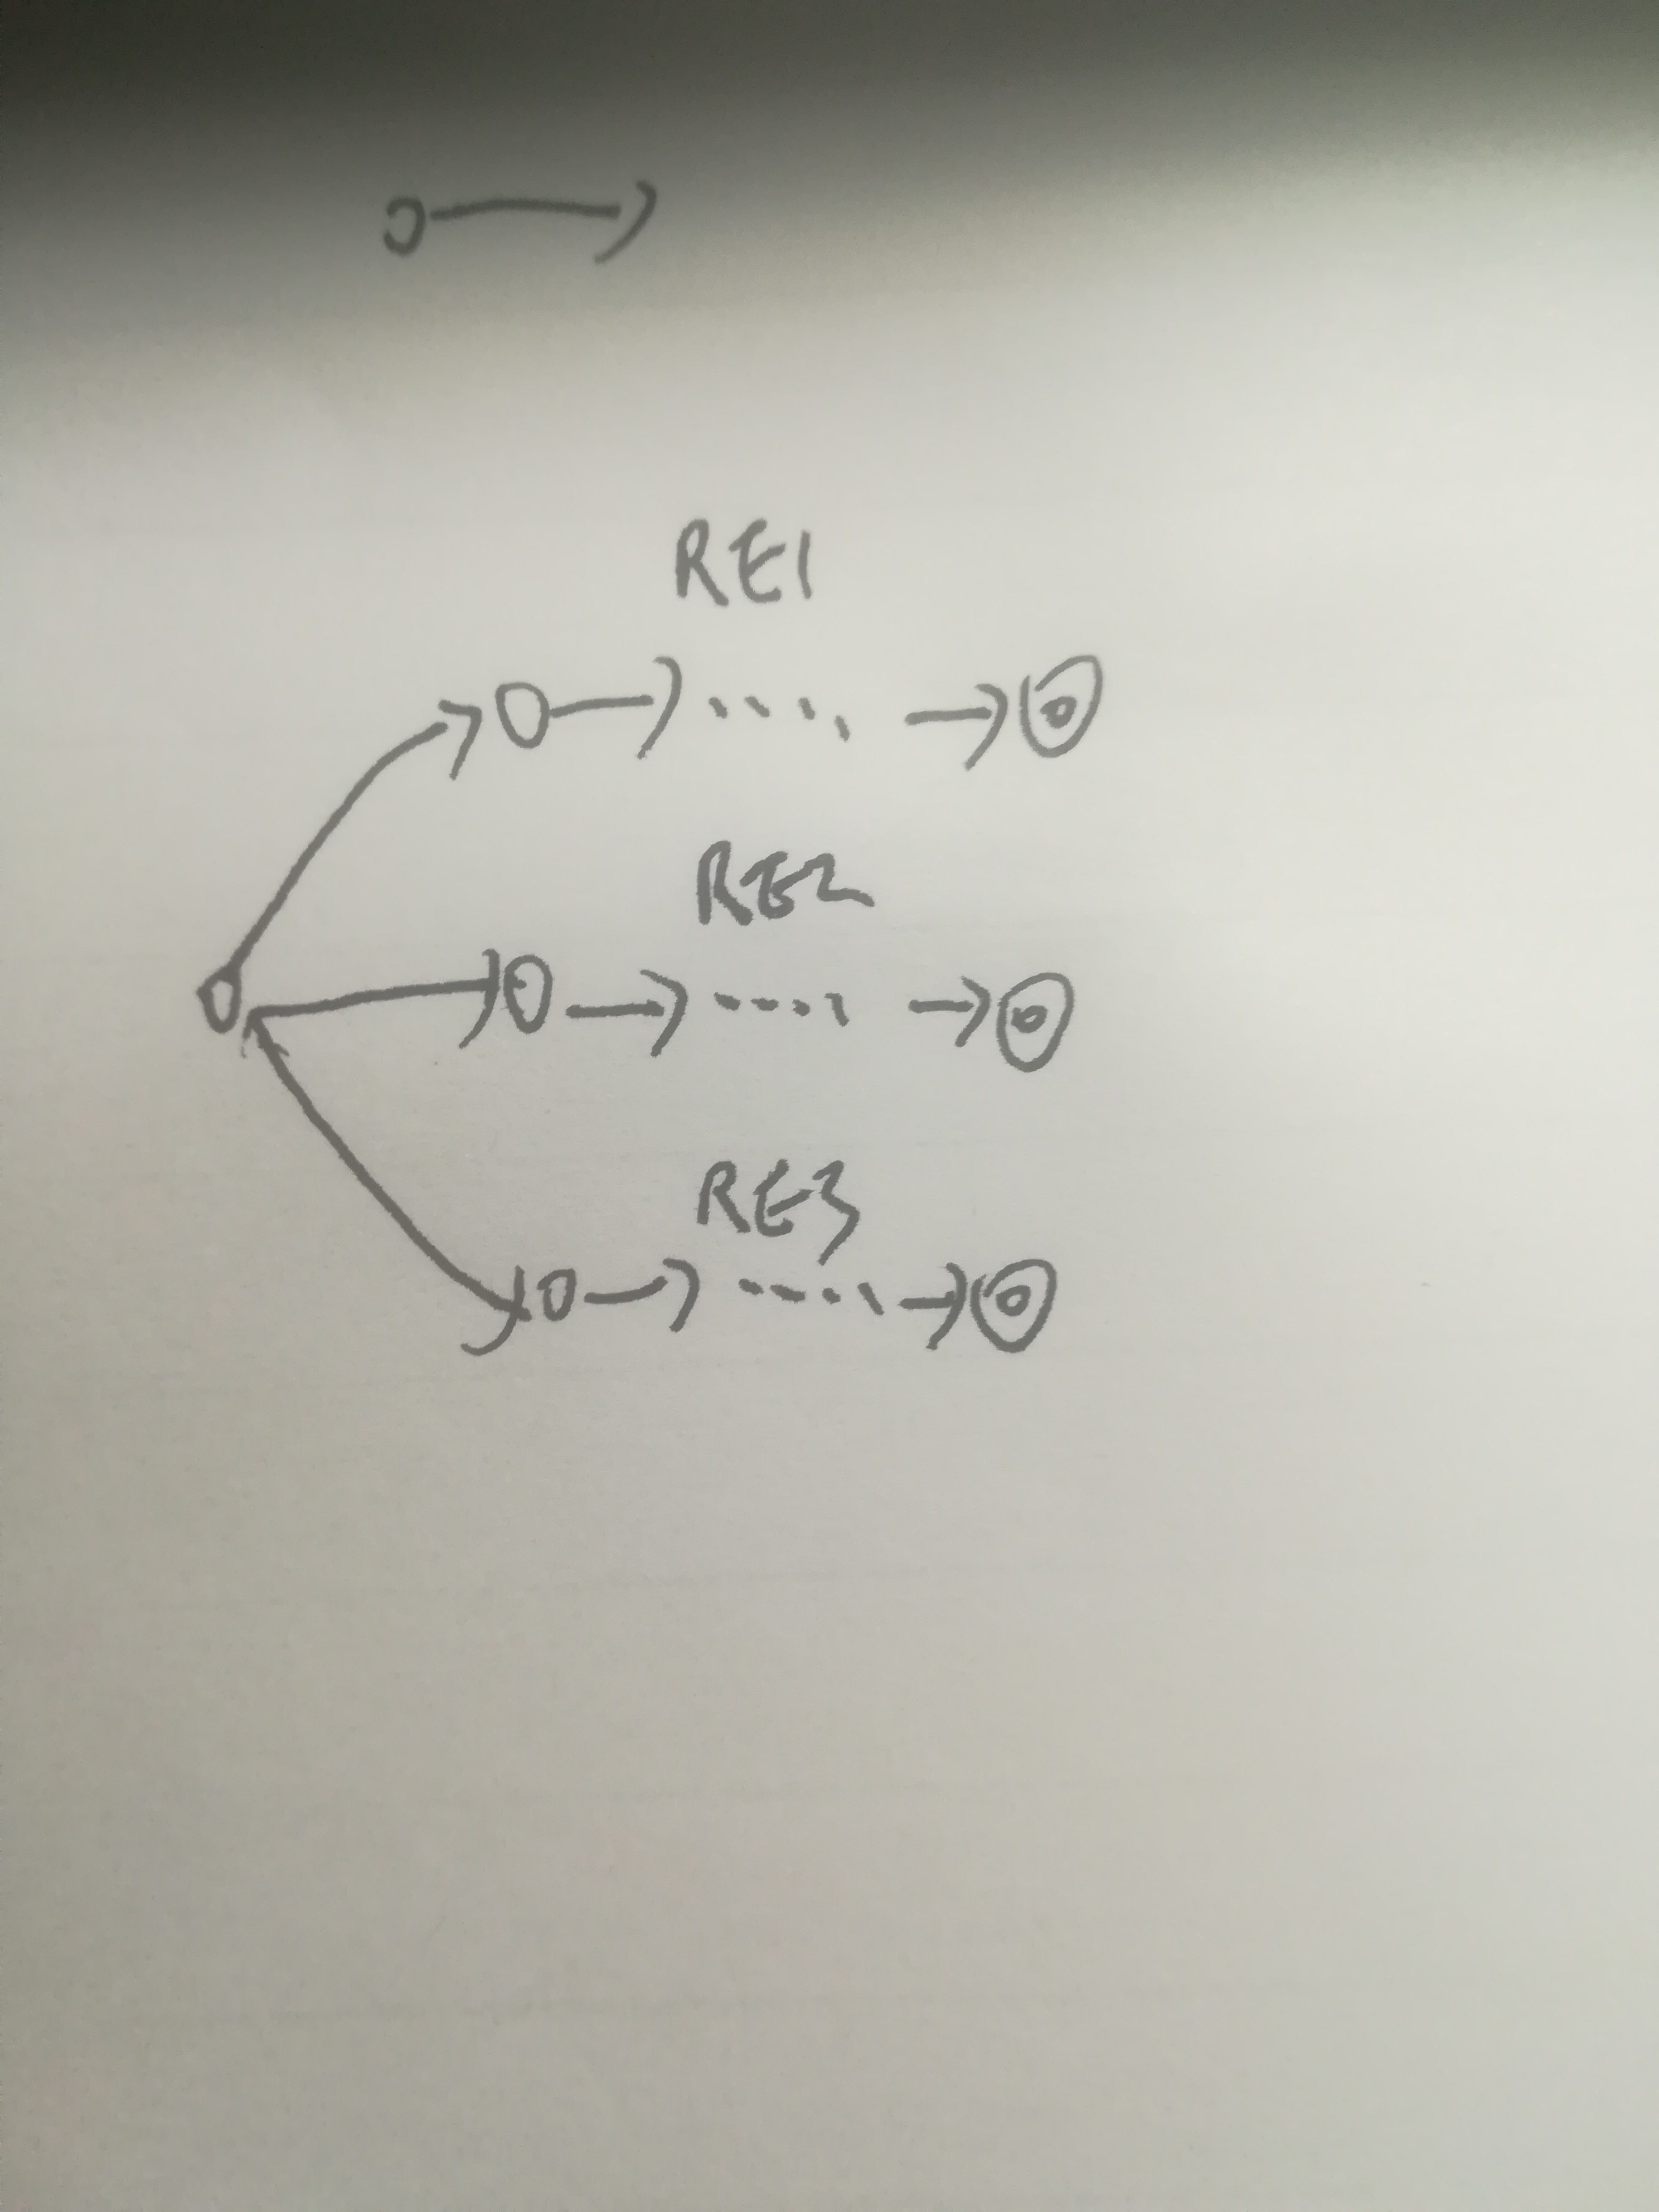 RE1
RE2
RE3